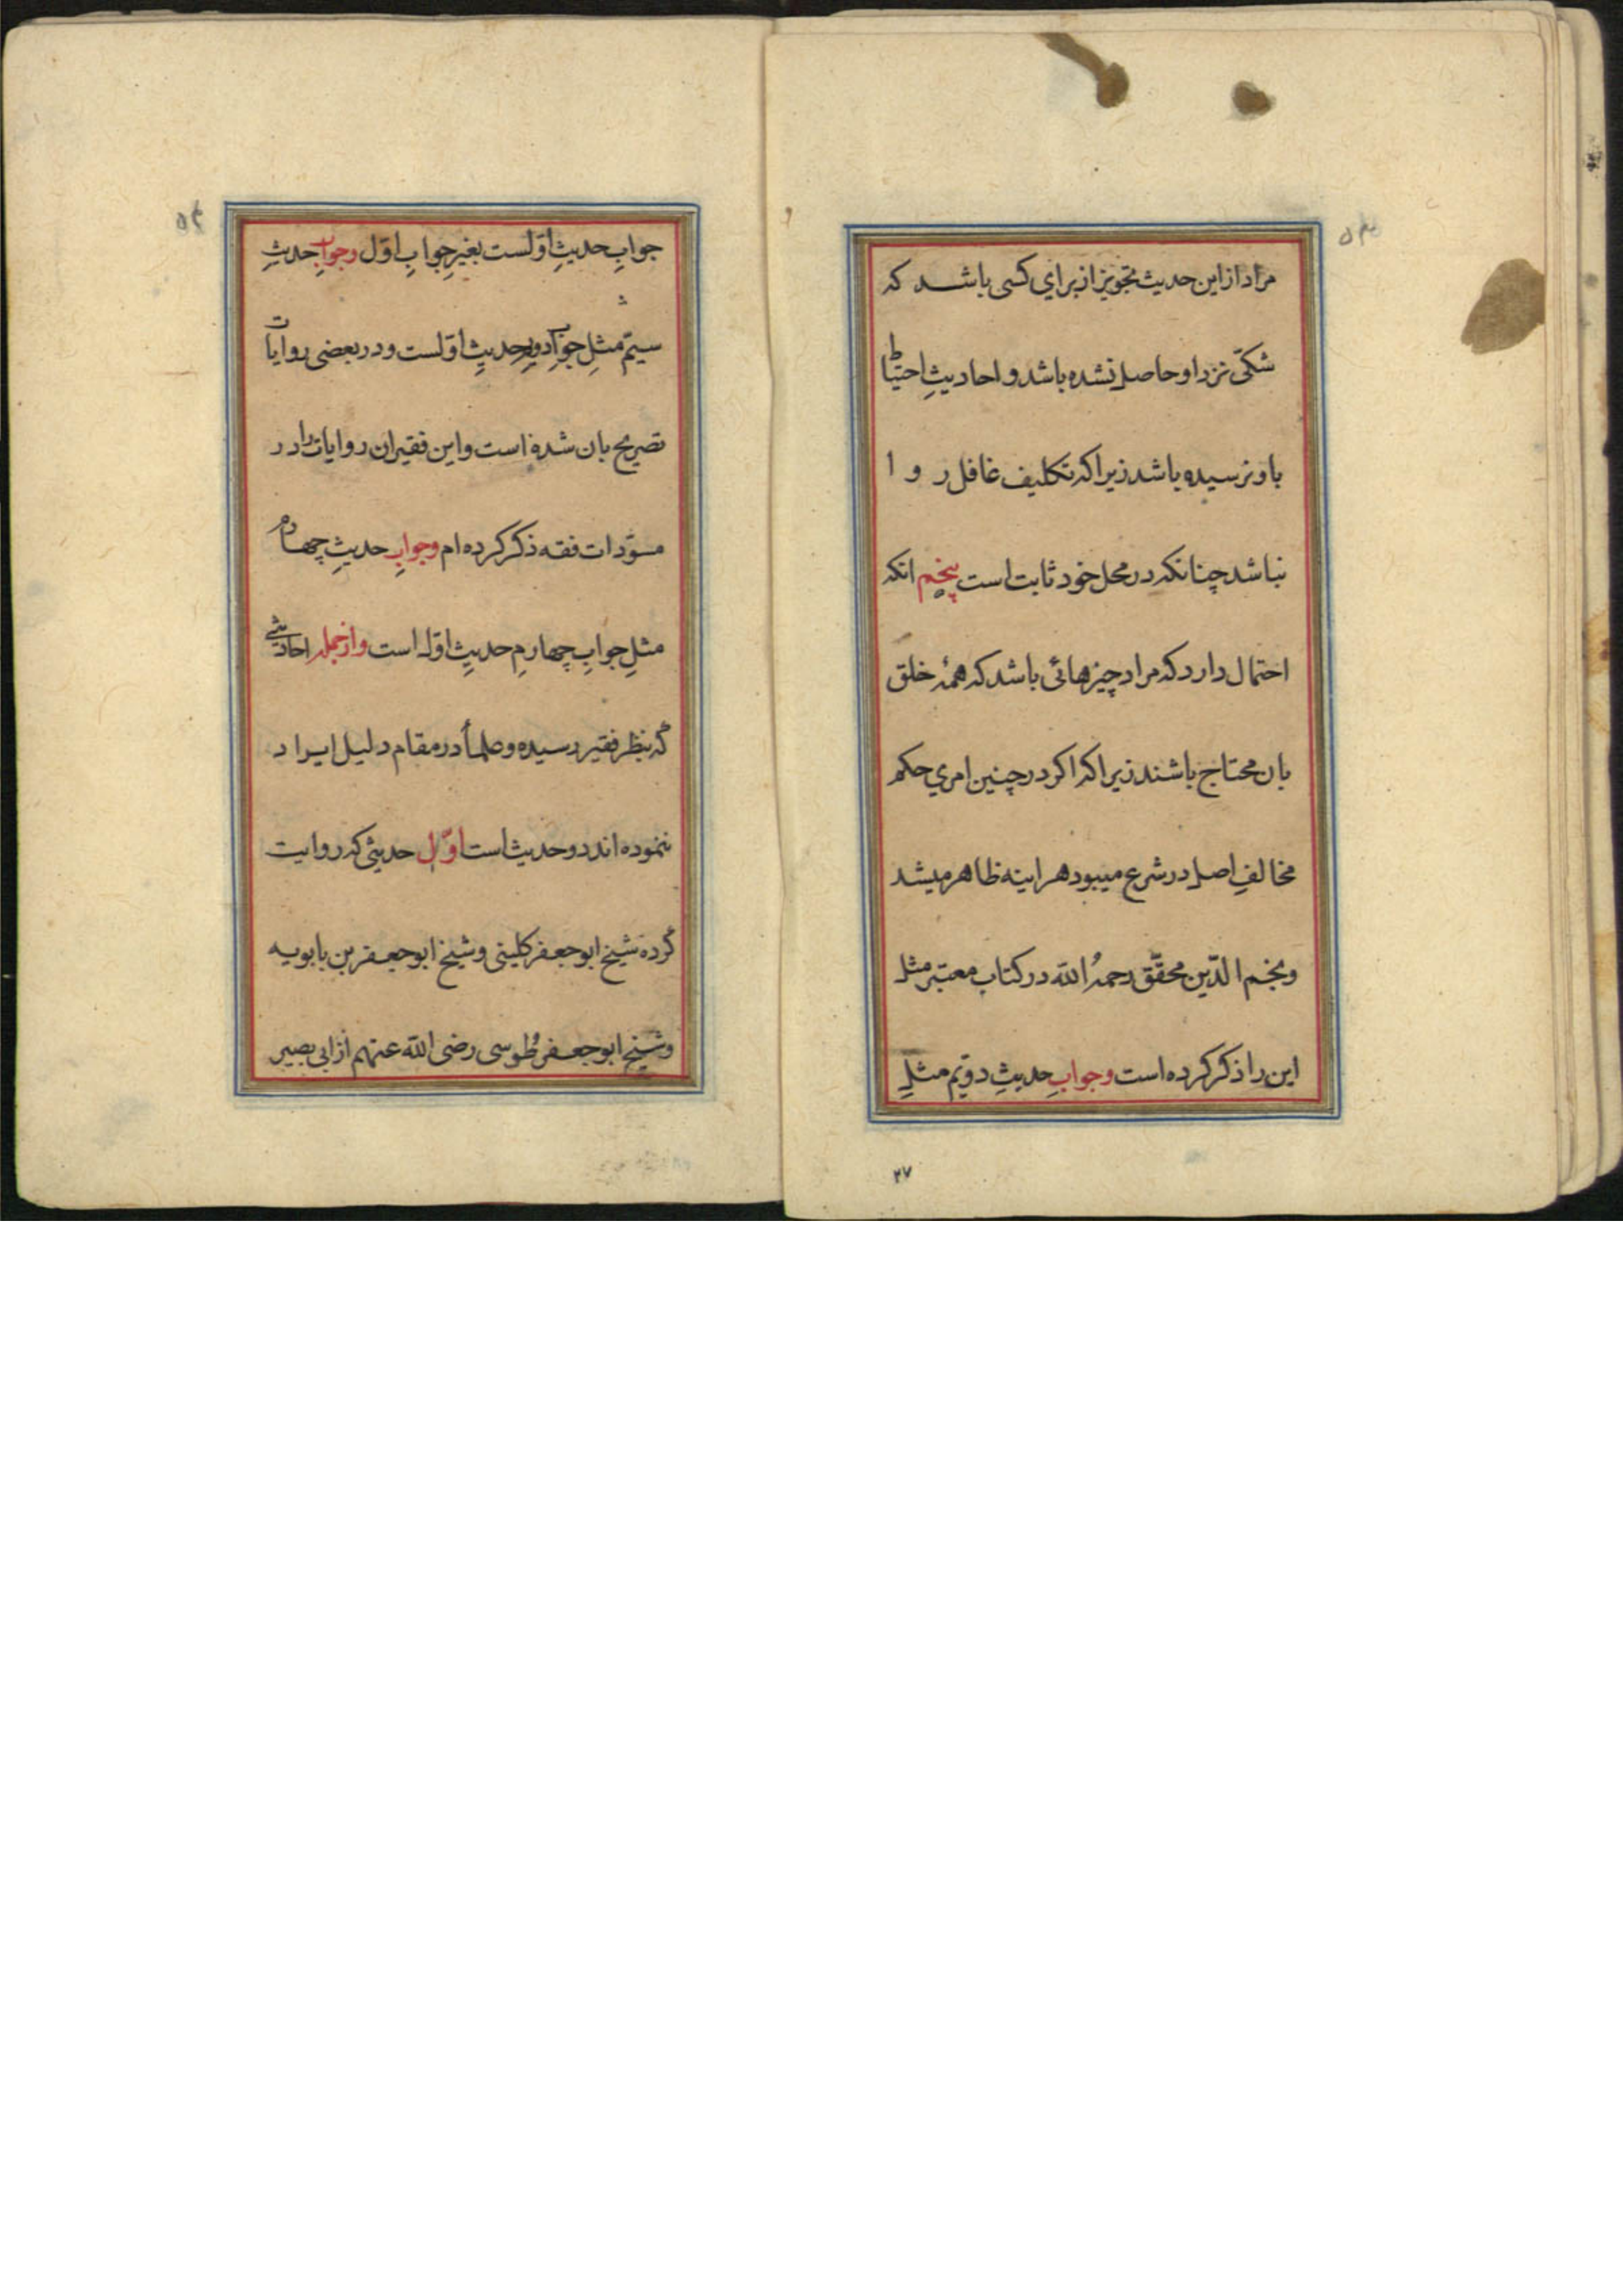 مراد از این حدیث تجویز از برای کسی باشد که
شکّی نزد او حاصل نشده باشد و احادیثِ احتیاط
باو نرسیده باشد زیرا که تکلیف غافل روا
نباشد چنانکه در محل خود ثابت است پنجم انکه
احتمال دارد که مراد چیزهائی باشد که همهٔ خلق
بان محتاج باشند زیرا که اکر در چنین امری حکم
مخالفِ اصل در شرع میبود هراینه ظاهر میشد
و نجم الدّین محقّق رحمهُ الله در کتاب معتبر مثل
این را ذکر کرده است وجوابِ حدیثِ دویّم مثلِ
۲۷
جوابِ حدیثِ اوّلست بغیرِ جوابِ اوّل وجوابِ حدیثِ
سیّم مثلِ جوابِ دویم حدیثِ اوّلست و در بعضی روایات
تصریح بان شده است و این فقیر ان روایات را در
مسوّدات فقه ذکر کرده ام وجوابِ حدیثِ چهارم
مثلِ جوابِ چهارمِ حدیثِ اوّل است وازجمله احادیثی
که بنظر فقیر رسیده و علما در مقام دلیل ایراد
ننموده اند دو حدیث است اوّل حدیثی که روایت
کرده شیخ ابو جعفر کلینی و شیخ ابو جعفر بن بابویه
و شیخ ابو جعفر طوسی رضی الله عنهم از ابی بصیر